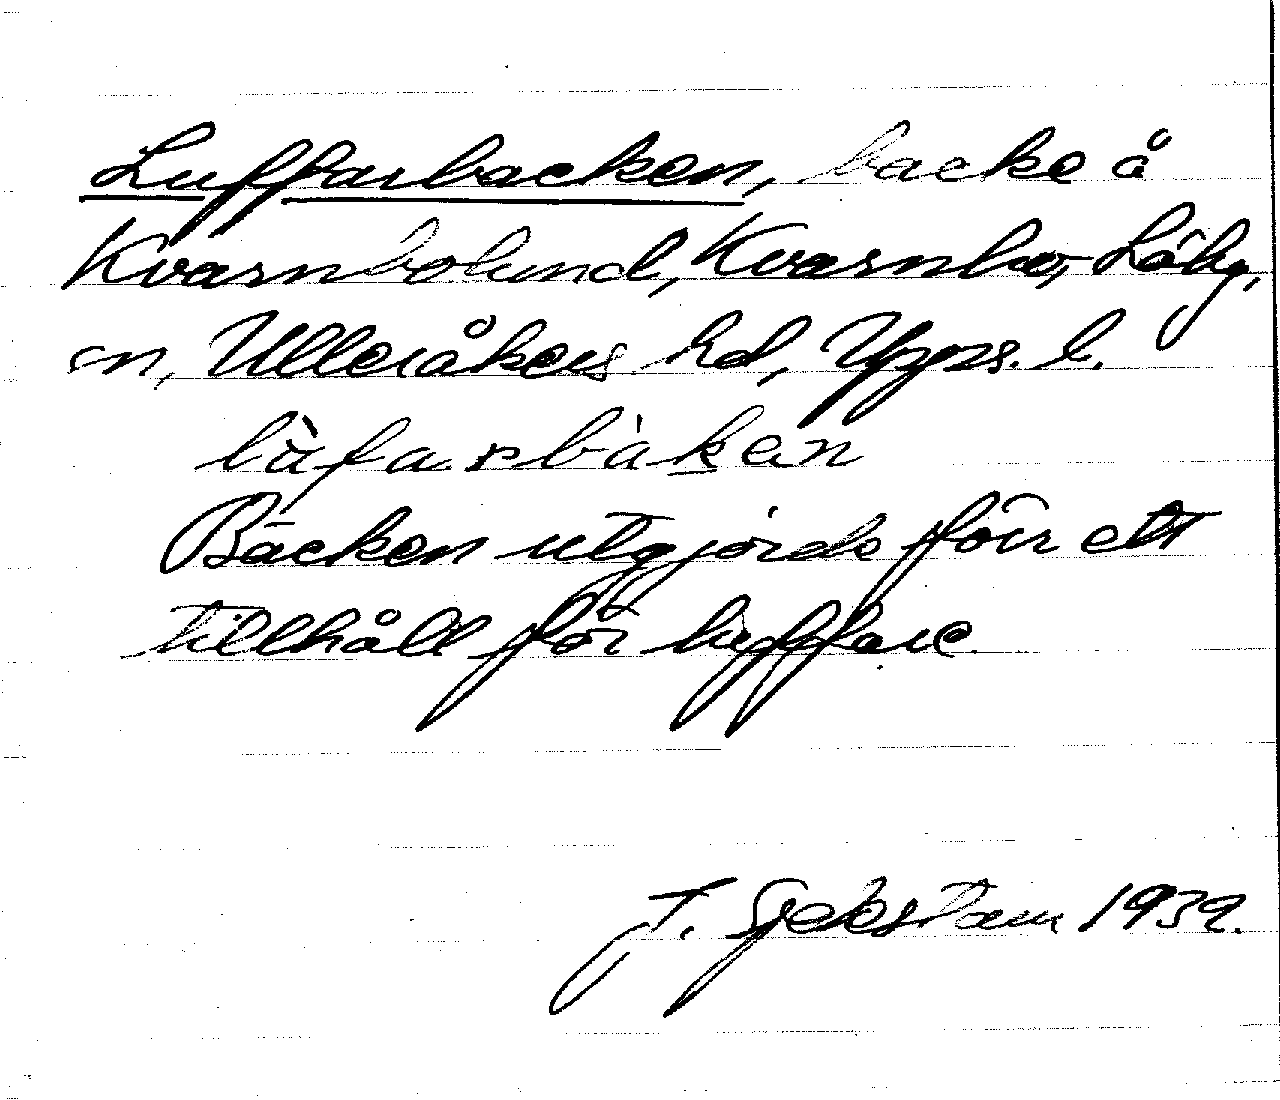 Luffarbacken, backe å
Kvarnbolund, Kvarnbo, Läby,
sn, Ulleråkers hd, Upps. l.
lùfarbàken
Backen utgjorde förr ett
tillhåll för luffare.
J. 1939.